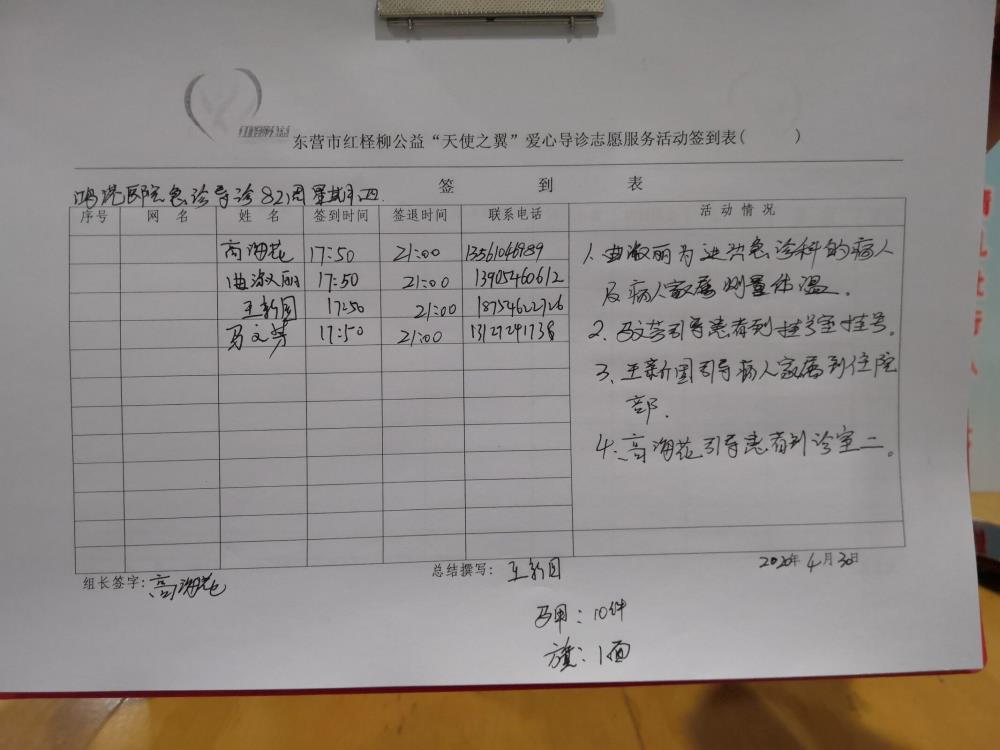 东营市红柽柳公益“天使之翼”爱心导诊志愿服务活动签到表( )
签 到 表
鸿港医院急诊导诊82周星期四
序号 网 名 姓 名 签到时间 签退时间 联系电话 活 动 情 况
高海花 17:50 21:00 13561046989
曲淑丽 17:50 21:00 13905460612
王新国 17:50 21:00 18754622726
马文芳 17:50 21:00
1.曲淑丽为进出急诊科的病人
及病人家属测量体温.
2.马文芳引导患者到挂号室挂号。
3.王新国引导病人家属到住院
部.
4.高海花引导患者到诊室二。
组长签字:高海花
总结撰写:王新国
2020年4月30日
马甲:10件
旗:1面